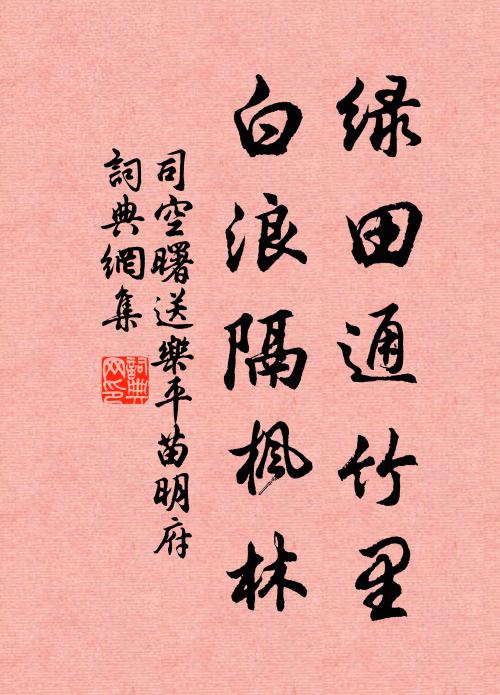 绿田通竹里
白浪隔枫林
司空曙送樂平苗明府
詞典網集
詞典
网印